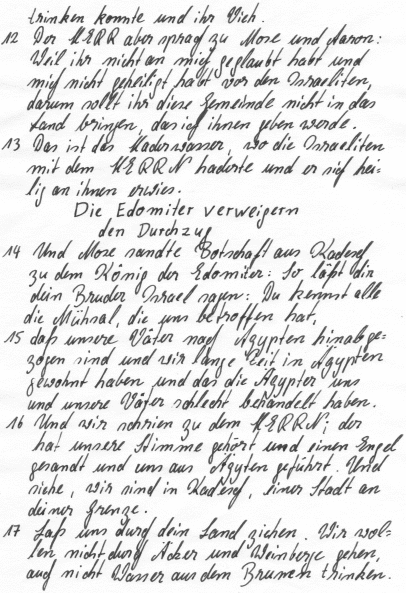 trinken konnte und ihr Vieh.
12 Der HERR aber sprach zu Mose und Aaron:
Weil ihr nicht an mich geglaubt habt und
mich nicht geheiligt habt vor den Israeliten,
darum sollt ihr diese Gemeinde nicht in das
Land bringen, das ich ihnen geben werde.
13 Das ist das Haderwasser, wo die Israeliten
mit dem HERRN haderte und er sich hei=
lig an ihnen erwies.
Die Edomiter verweigern
den Durchzug
14 Und Mose sandte Botschaft aus Kadesch
zu dem König der Edomiter: So läßt dir
dein Bruder Israel sagen: Du kennst alle
die Mühsal, die uns betroffen hat,
15 daß unsere Väter nach Ägypten hinabge=
zogen sind und wir lange Zeit in Ägypten
gewohnt haben und das die Ägypter uns
und unsere Väter schlecht behandelt haben.
16 Und wir schrien zu dem HERRN; der
hat unsere Stimme gehört und einen Engel
gesandt und uns aus Ägyten geführt. Und
siehe, wir sind in Kadesch, einer Stadt an
deiner Grenze.
17 Laß uns durch dein Land ziehen. Wir wol=
len nicht durch Äcker und Weinberge gehen,
auch nicht Wasser aus dem Brunnen trinken.